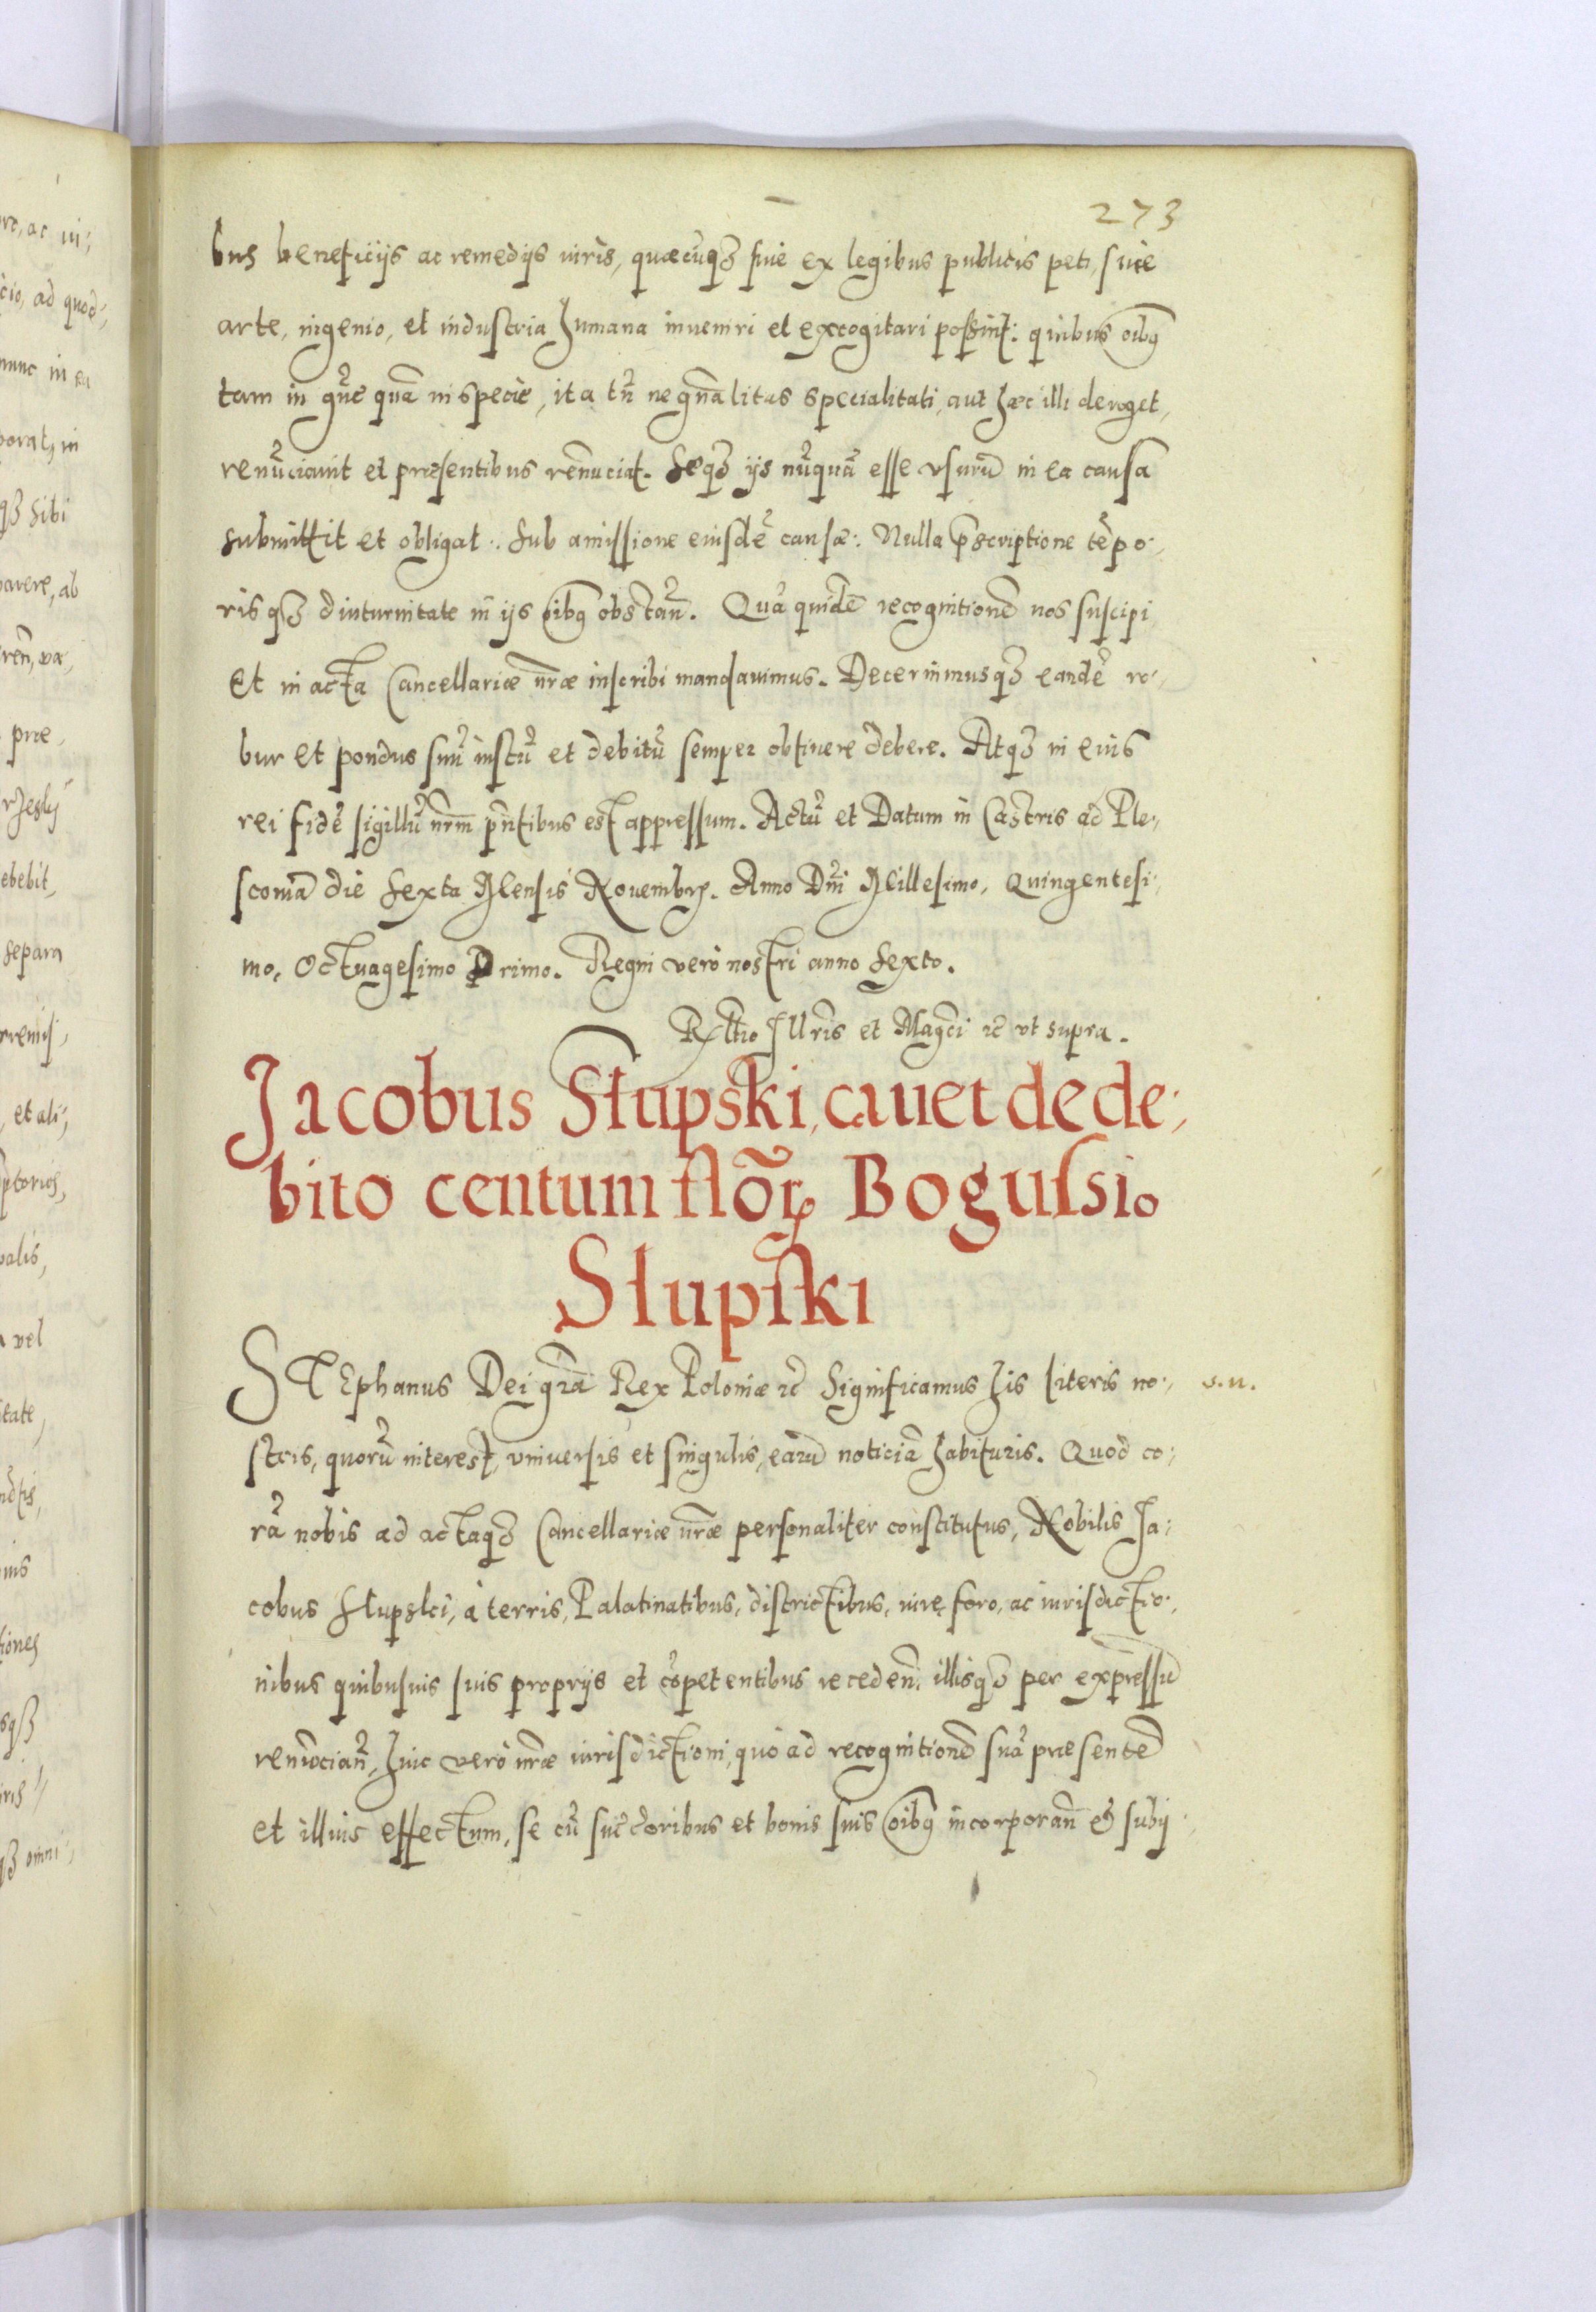 273
bus beneficijs ac remedijs iuris, quæcũqȝ siue ex legibus publicis peti, siue
arte, ingenio, et industria humana inueniri et excogitari possint: quibus oib9
tam in gñe quã in specie, ita tñ ne gñalitas specialitati, aut hæc illi deroget,
renũciauit et præsentibus renũciat. Seqȝ ijs nũquã esse vsurũ in ea causa
submittit et obligat: Sub amissione eiusdẽ causæ: Nulla p̃scriptione tẽpo:
risqȝ diuturnitate in ijs oib9 obstañ. Quã quidẽ recognitionẽ nos suscipi
et in acta Cancellariæ nr̃æ inscribi mandauimus. Decernimusqȝ eandẽ ro:
bur et pondus suũ iustũ et debitũ semper obtinere debere. Atqȝ in eius
rei fidẽ sigillũ nr̃m pñtibus est appressum. Actũ et Datum in Castris ad Ple:
scouiã die Sexta Mensis Nouembrs. Anno Dñi Millesimo, Quingentesi:
mo, Octuagesimo Primo. Regni vero nostri anno Sexto.
Rltio Illris et Magci ꝛc̃ vt supra.
Jacobus Słupski, cauet de de:
bito centum flõrꝝ Bogussio
Słupski
STEphanus Dei gr̃a Rex Poloniæ ꝛc̃ Significamus his literis no:
s.n.
stris, quorũ interest, vniuersis et singulis, earũ noticiã habituris. Quod co:
rã nobis ad actaqȝ Cancellariæ nr̃æ personaliter constitutus, Nobilis Ja:
cobus Słupski, à terris, Palatinatibus, districtibus, iure, foro, ac iurisdictio:
nibus quibusuis suis proprijs et cõpetentibus recedeñ. illisqȝ per expressũ
renũciañ, huic verò nr̃æ iurisdictioni, quò ad recognitionẽ suã præsentẽ
et illius effectum, se cũ succ̃oribus et bonis suis oib9 incorporañ et subij